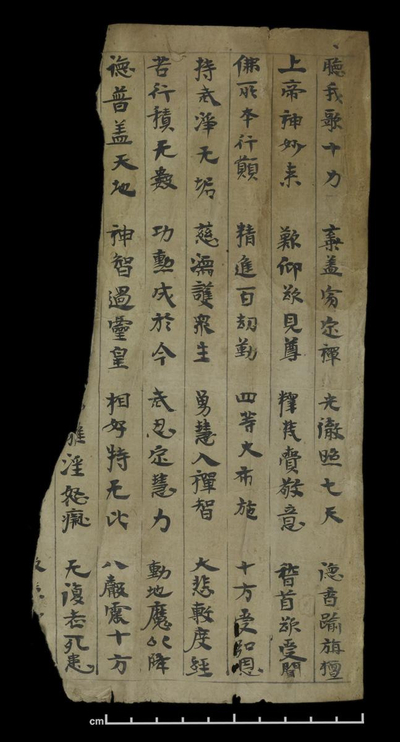 聽我歌十力 棄蓋寂定禪 光徹照七天 德香踰旃檀
上帝神妙来 歎仰欲見尊 釋梵賫敬意 稽首欲受聞
佛所本行願 精進百劫勤 四等大布施 十方受弘恩
持戒淨无垢 慈濡護衆生 勇慧入禪智 大悲敷度經
苦行積无數 功勳成於今 戒忍定慧力 動地魔以降
德普盖天地 神智過靈皇 相好特无比 八聲震十方
離淫怒癡 无復老死患